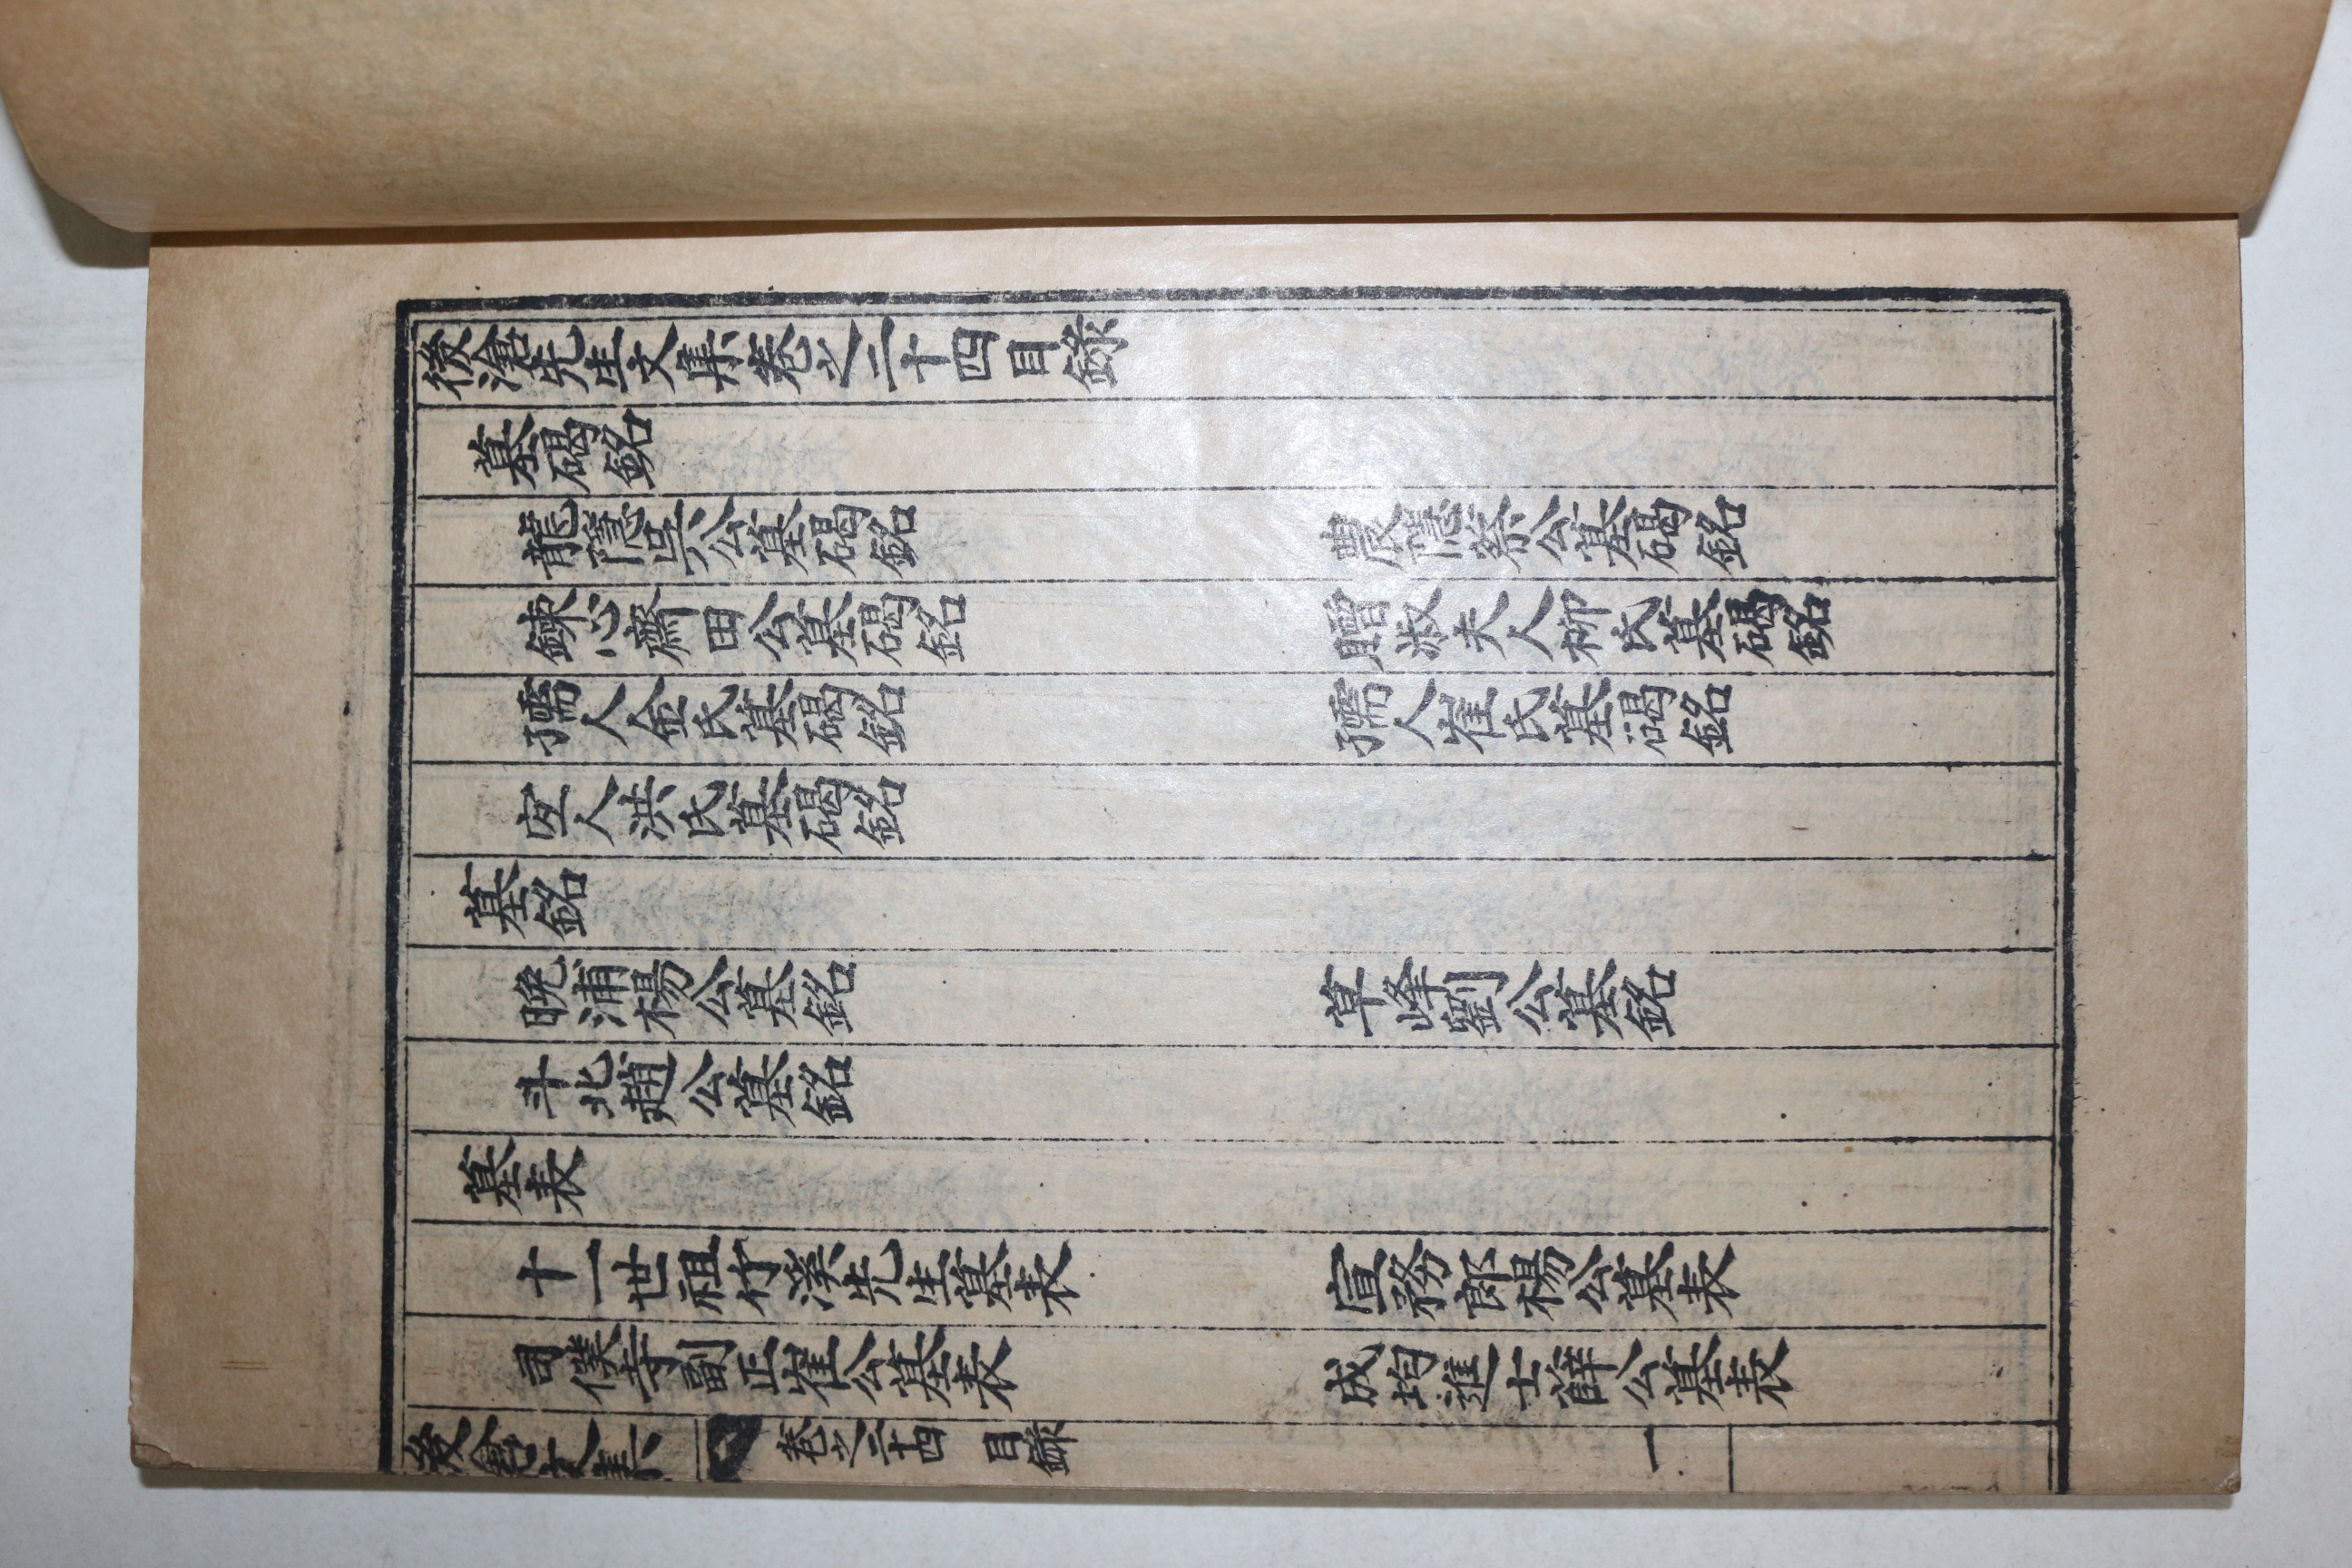 後滄先生文集卷之二十四目錄
墓碣銘
龍隱吳公墓碣銘
農隱蔡公墓碣銘
鍊心齋田公墓碣銘
贈淑夫人柳氏墓碣銘
孺人金氏墓碣銘
孺人崔氏墓碣銘
宜人洪氏墓碣銘
墓銘
晩浦楊公墓銘
草峰劉公墓銘
斗北趙公墓銘
墓表
十一世祖竹溪先生墓表
宣務郎楊公墓表
司僕寺副正崔公墓表
成均進士薛公墓表
後滄文集
卷之二十四
目錄
一